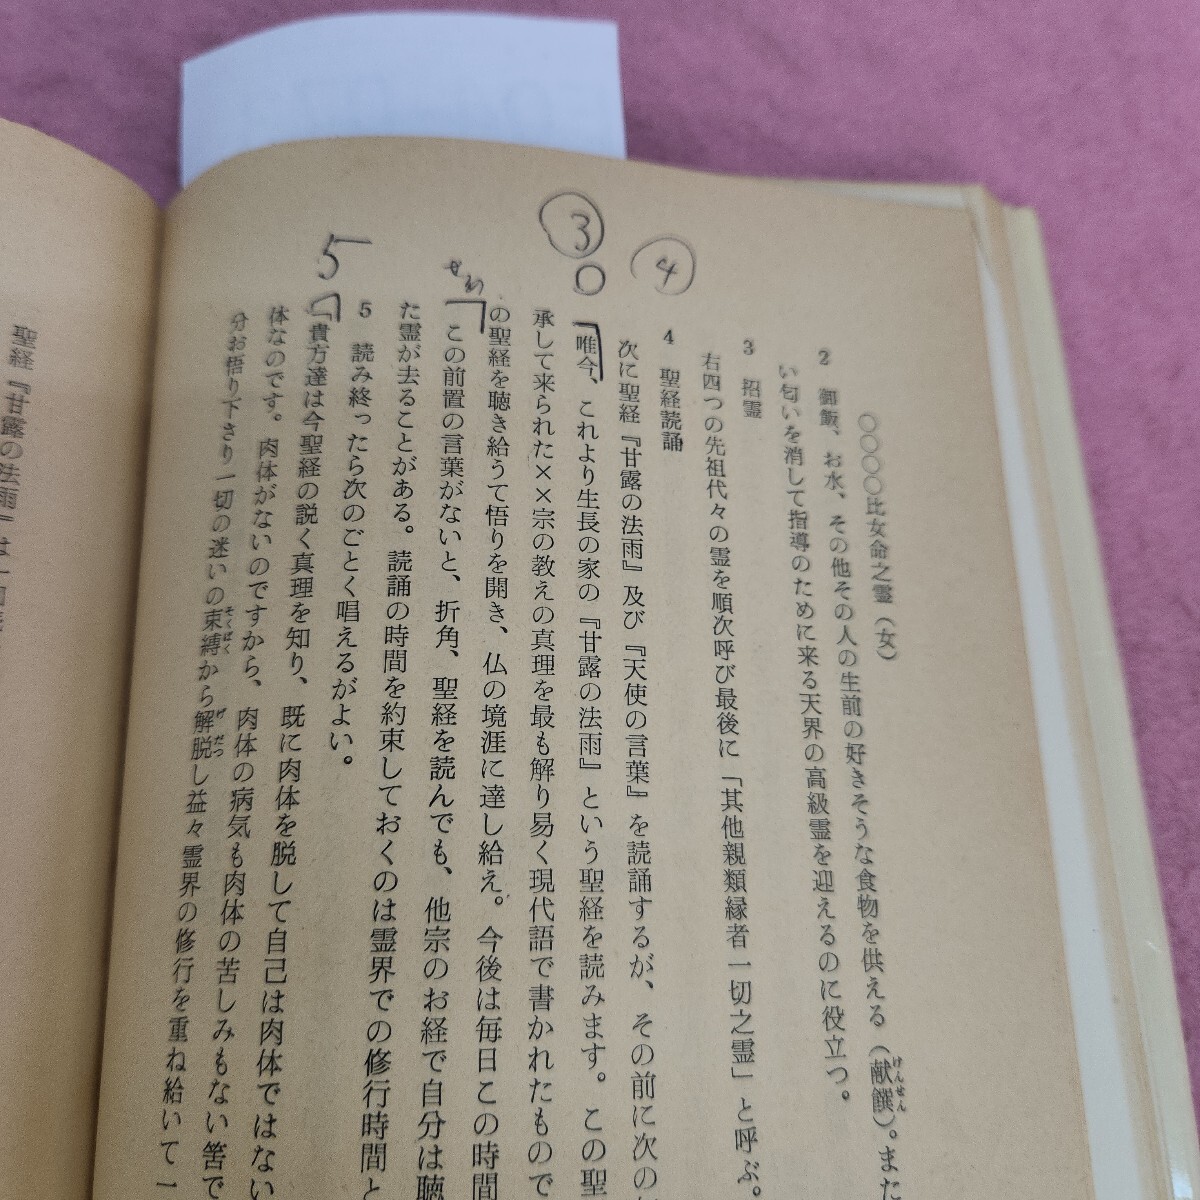 ③
④
5
せれ
〇〇〇〇比女命之霊（女）
2 御飯、お水、その他その人の生前の好きそうな食物を供える（献饌）。また
けんせん
い匂いを消して指導のために来る天界の高級霊を迎えるのに役立つ。
3 招霊
右四つの先祖代々の霊を順次呼び最後に「其他親類縁者一切之霊」と呼ぶ。
4 聖経読誦
次に聖経『甘露の法雨』及び『天使の言葉』を読誦するが、その前に次の
「唯今、これより生長の家の『甘露の法雨』という聖経を読みます。この聖
承して来られた××宗の教えの真理を最も解り易く現代語で書かれたもので
の聖経を聴き給うて悟りを開き、仏の境涯に達し給え。今後は毎日この時間
この前置の言葉がないと、折角、聖経を読んでも、他宗のお経で自分は聴
た霊が去ることがある。読誦の時間を約束しておくのは霊界での修行時間と
5 読み終ったら次のごとく唱えるがよい。
「貴方達は今聖経の説く真理を知り、既に肉体を脱して自己は肉体ではない
体なのです。肉体がないのですから、肉体の病気も肉体の苦しみもない筈で
分お悟り下さり一切の迷いの束縛から解脱し益々霊界の修行を重ね給いて一
そくばく
げだつ
聖経『甘露の法雨』は一回